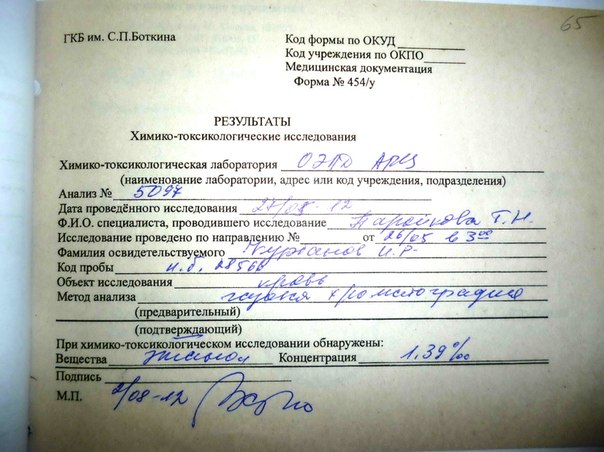 65
ГКБ им. С.П.Боткина
Код формы по ОКУД
Код учреждения по ОКПО
Медицинская документация
Форма № 454/у
РЕЗУЛЬТАТЫ
Химико-токсикологические исследования
Химико-токсикологическая лаборатория ОЭПД АРЦ
(наименование лаборатории, адрес или код учреждения, подразделения)
Анализ № 5097
Дата проведённого исследования
Ф.И.О. специалиста, проводившего исследование Т.Н.
Исследование проведено по направлению № от 26/05 в 3 00
Фамилия освидетельствуемого И.Р.
Код пробы и.б. 28566
Объект исследования кровь
Метод анализа хроматография
(предварительный)
(подтверждающий)
При химико-токсикологическом исследовании обнаружены:
Вещества этанол Концентрация 1,39‰
Подпись
М.П. /08-12